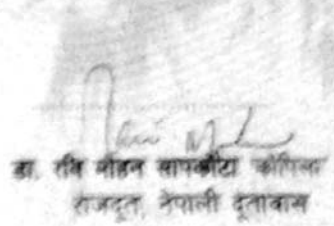 डा. रवि मोहन सापकोटा कोपिला
राजदूत, नेपाली दूतावास